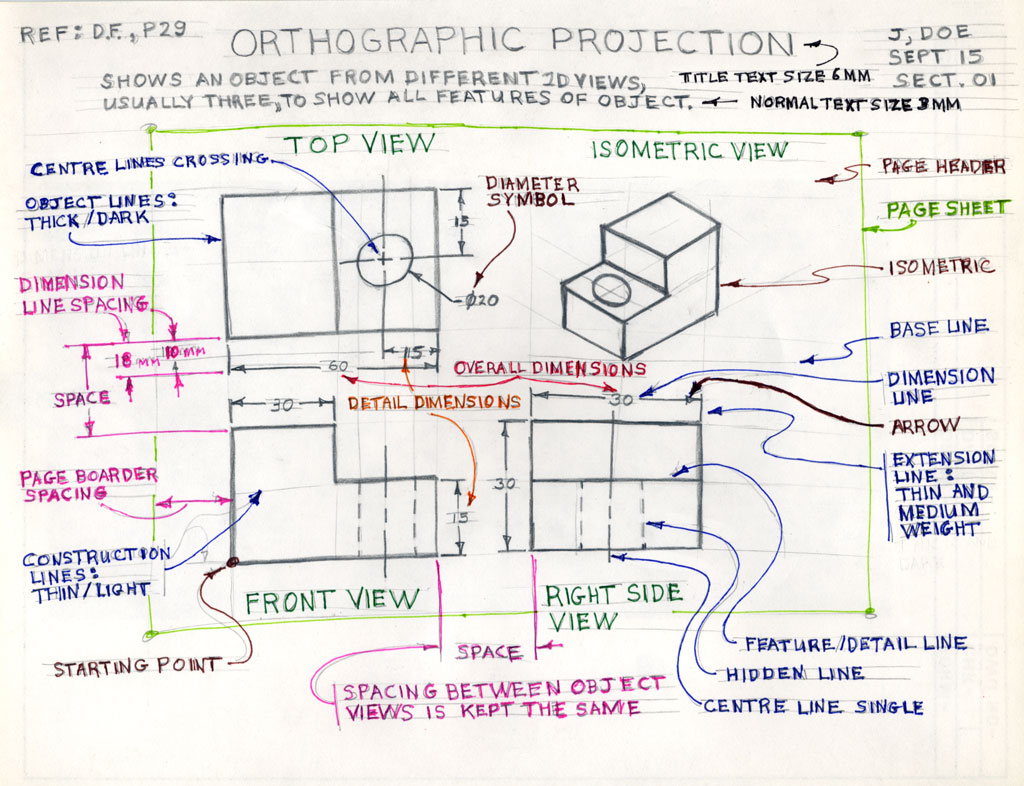 REF: D.F., P29
ORTHOGRAPHIC PROJECTION
J, DOE
SEPT 15
SECT. 01
SHOWS AN OBJECT FROM DIFFERENT 2D VIEWS,
USUALLY THREE, TO SHOW ALL FEATURES OF OBJECT.
TITLE TEXT SIZE 6MM
NORMAL TEXT SIZE 3MM
TOP VIEW
ISOMETRIC VIEW
CENTRE LINES CROSSING
OBJECT LINES:
THICK/DARK
DIAMETER
SYMBOL
PAGE HEADER
PAGE SHEET
ISOMETRIC
15
Ø20
DIMENSION
LINE SPACING
18 MM
10 MM
SPACE
15
60
OVERALL DIMENSIONS
DETAIL DIMENSIONS
30
30
BASE LINE
DIMENSION
LINE
ARROW
EXTENSION
LINE:
THIN AND
MEDIUM
WEIGHT
PAGE BOARDER
SPACING
15
30
CONSTRUCTION
LINES:
THIN/LIGHT
FRONT VIEW
RIGHT SIDE
VIEW
STARTING POINT
SPACE
SPACING BETWEEN OBJECT
VIEWS IS KEPT THE SAME
FEATURE/DETAIL LINE
HIDDEN LINE
CENTRE LINE SINGLE